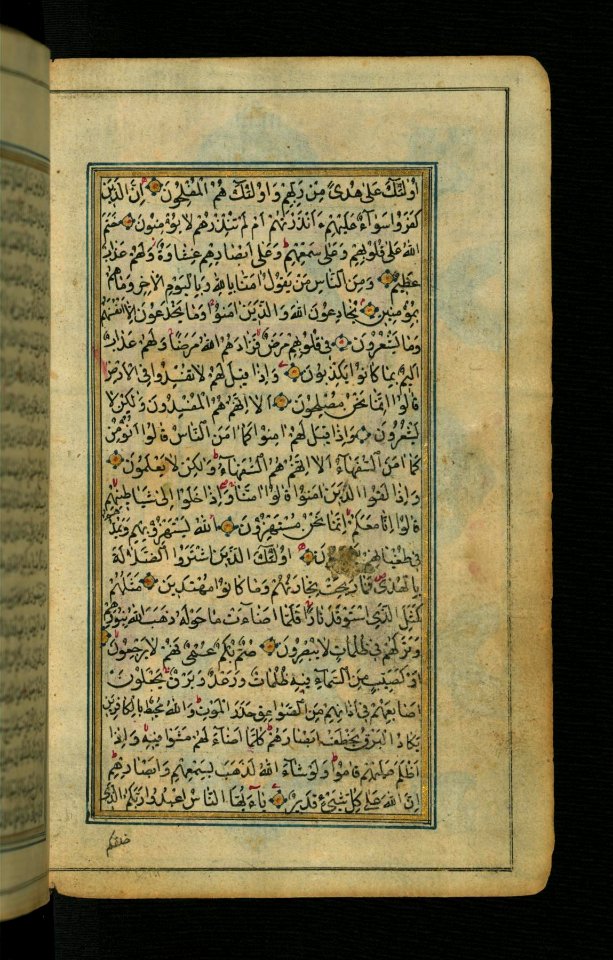 اُولٰئِكَ عَلٰى هُدًى مِنْ رَبِّهِمْ وَاُولٰئِكَ هُمُ الْمُفْلِحُونَ اِنَّ الَّذِينَ
كَفَرُوا سَوَآءٌ عَلَيْهِمْ ءَاَنْذَرْتَهُمْ اَمْ لَمْ تُنْذِرْهُمْ لَا يُؤْمِنُونَ خَتَمَ
اللهُ عَلٰى قُلُوبِهِمْ وَعَلٰى سَمْعِهِمْ وَعَلٰى اَبْصَارِهِمْ غِشَاوَةٌ وَلَهُمْ عَذَابٌ
عَظِيمٌ وَمِنَ النَّاسِ مَنْ يَقُولُ اٰمَنَّا بِاللهِ وَبِالْيَوْمِ الْاٰخِرِ وَمَا هُمْ
بِمُؤْمِنِينَ يُخَادِعُونَ اللهَ وَالَّذِينَ اٰمَنُوا وَمَا يَخْدَعُونَ اِلَّا اَنْفُسَهُمْ
وَمَا يَشْعُرُونَ فِى قُلُوبِهِمْ مَرَضٌ فَزَادَهُمُ اللهُ مَرَضًا وَلَهُمْ عَذَابٌ
اَلِيمٌ بِمَا كَانُوا يَكْذِبُونَ وَاِذَا قِيلَ لَهُمْ لَا تُفْسِدُوا فِى الْاَرْضِ
قَالُوا اِنَّمَا نَحْنُ مُصْلِحُونَ اَلَا اِنَّهُمْ هُمُ الْمُفْسِدُونَ وَلٰكِنْ لَا
يَشْعُرُونَ وَاِذَا قِيلَ لَهُمْ اٰمِنُوا كَمَا اٰمَنَ النَّاسُ قَالُوا اَنُؤْمِنُ
كَمَا اٰمَنَ السُّفَهَآءُ اَلَا اِنَّهُمْ هُمُ السُّفَهَآءُ وَلٰكِنْ لَا يَعْلَمُونَ
وَاِذَا لَقُوا الَّذِينَ اٰمَنُوا قَالُوا اٰمَنَّا وَاِذَا خَلَوْا اِلٰى شَيَاطِينِهِمْ
قَالُوا اِنَّا مَعَكُمْ اِنَّمَا نَحْنُ مُسْتَهْزِؤُنَ اَللهُ يَسْتَهْزِئُ بِهِمْ وَيَمُدُّهُمْ
فِى طُغْيَانِهِمْ اُولٰئِكَ الَّذِينَ اشْتَرَوُا الضَّلَالَةَ
بِالْهُدٰى فَمَا رَبِحَتْ تِجَارَتُهُمْ وَمَا كَانُوا مُهْتَدِينَ مَثَلُهُمْ
كَمَثَلِ الَّذِى اسْتَوْقَدَ نَارًا فَلَمَّا اَضَآءَتْ مَا حَوْلَهُ ذَهَبَ اللهُ بِنُورِهِمْ
وَتَرَكَهُمْ فِى ظُلُمَاتٍ لَا يُبْصِرُونَ صُمٌّ بُكْمٌ عُمْىٌ فَهُمْ لَا يَرْجِعُونَ
اَوْ كَصَيِّبٍ مِنَ السَّمَآءِ فِيهِ ظُلُمَاتٌ وَرَعْدٌ وَبَرْقٌ يَجْعَلُونَ
اَصَابِعَهُمْ فِى اٰذَانِهِمْ مِنَ الصَّوَاعِقِ حَذَرَ الْمَوْتِ وَاللهُ مُحِيطٌ بِالْكَافِرِينَ
يَكَادُ الْبَرْقُ يَخْطَفُ اَبْصَارَهُمْ كُلَّمَا اَضَآءَ لَهُمْ مَشَوْا فِيهِ وَاِذَا
اَظْلَمَ عَلَيْهِمْ قَامُوا وَلَوْ شَآءَ اللهُ لَذَهَبَ بِسَمْعِهِمْ وَاَبْصَارِهِمْ
اِنَّ اللهَ عَلٰى كُلِّ شَىْءٍ قَدِيرٌ يَآ اَيُّهَا النَّاسُ اعْبُدُوا رَبَّكُمُ الَّذِى
خلقكم